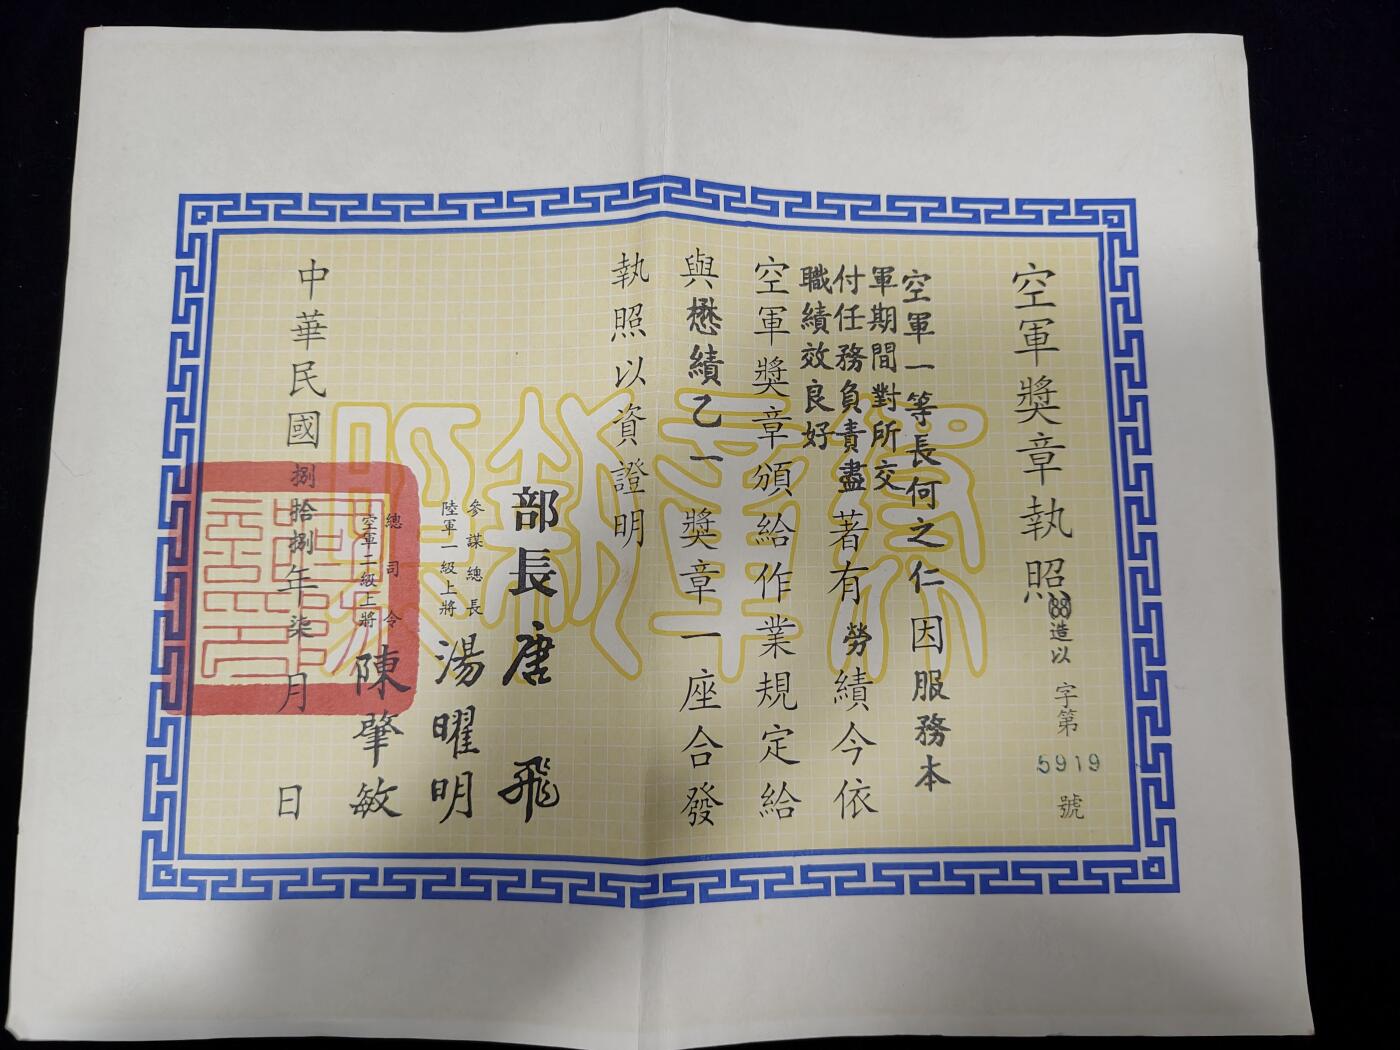 空軍獎章執照
(88)造以字第5919號
空軍一等長何之仁因服務本
軍期間對所交
付任務負責盡
職績效良好
著有勞績今依
空軍獎章頒給作業規定給
與懋績乙一獎章一座合發
執照以資證明
部長唐飛
參謀總長
陸軍一級上將
湯曜明
總司令
空軍二級上將
陳肇敏
中華民國捌拾捌年柒月日